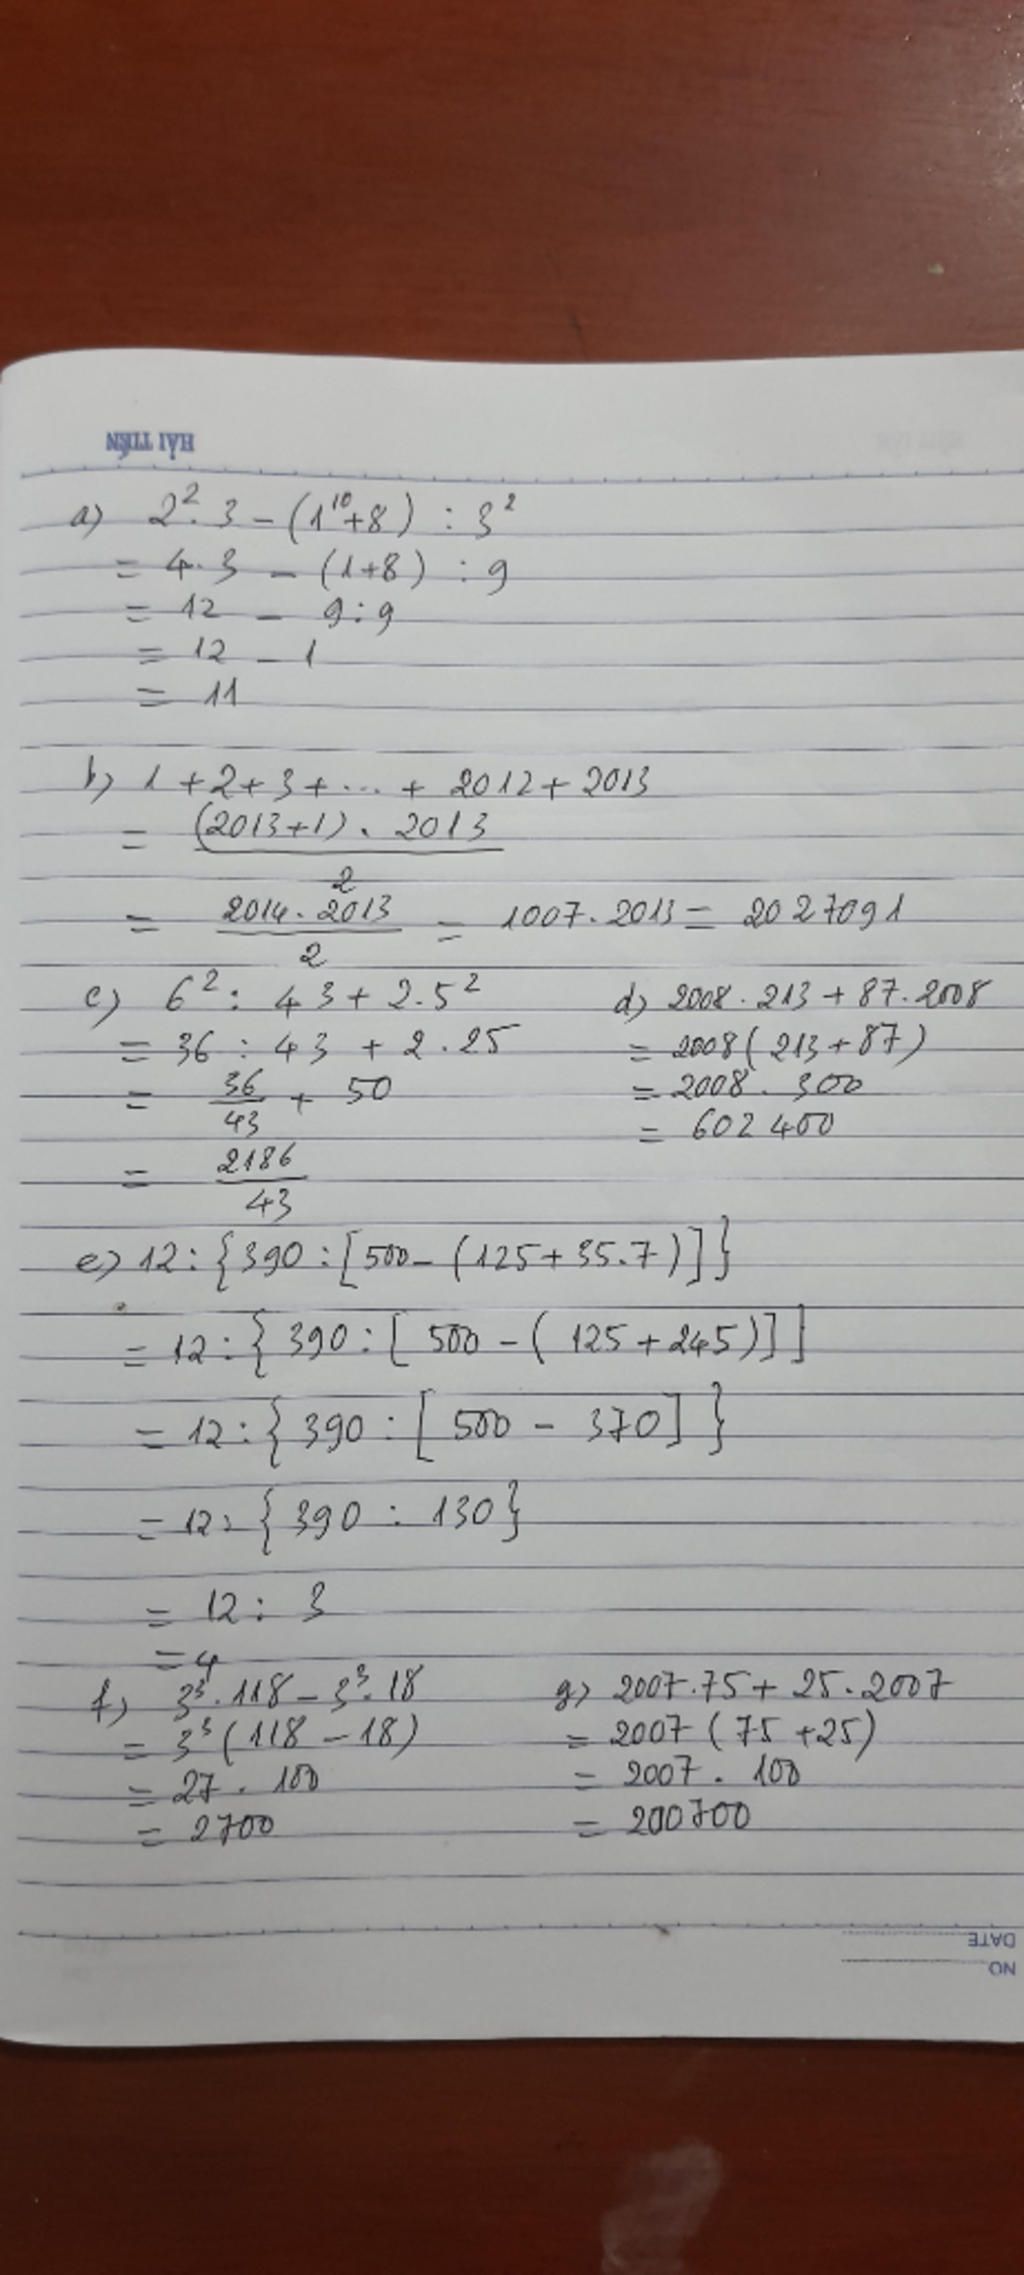 HẢI TIẾN
a) 2². 3 – (1¹⁰+8) : 3²
= 4.3 – (1+8) : 9
= 12 – 9:9
= 12 – 1
= 11
b) 1 + 2 + 3 + ... + 2012 + 2013
= (2013+1) . 2013
2
= 2014 . 2013 = 1007 . 2013 = 2027091
2
c) 6² : 43 + 2.5²
= 36 : 43 + 2.25
= 36/43 + 50
= 2186/43
d) 2008 . 213 + 87 . 2008
= 2008 ( 213 + 87 )
= 2008 . 300
= 602 400
e) 12 : { 390 : [ 500 – (125 + 35.7) ] }
= 12 : { 390 : [ 500 – ( 125 + 245 ) ] ]
= 12 : { 390 : [ 500 – 370 ] }
= 12 : { 390 : 130 }
= 12 : 3
= 4
f) 3³ . 118 – 3³ . 18
= 3³ ( 118 – 18 )
= 27 . 100
= 2700
g) 2007.75 + 25.2007
= 2007 ( 75 + 25 )
= 2007 . 100
= 200700
DATE
NO